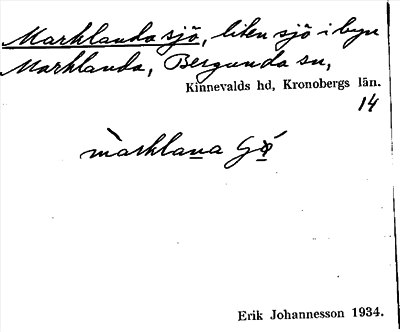 Marklanda sjö, liten sjö i byn
Marklanda, Bergunda sn,
Kinnevalds hd, Kronobergs län.
14
Erik Johannesson 1934.